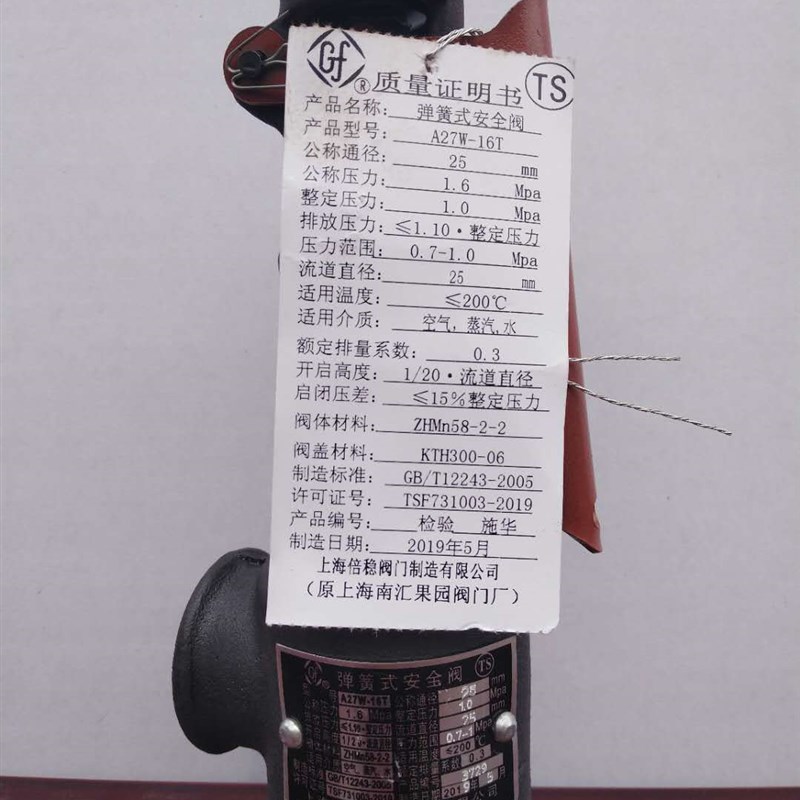 Gf ® 质量证明书 TS
产品名称: 弹簧式安全阀
产品型号: A27W-16T
公称通径: 25 mm
公称压力: 1.6 Mpa
整定压力: 1.0 Mpa
排放压力: ≤1.10·整定压力
压力范围: 0.7-1.0 Mpa
流道直径: 25 mm
适用温度: ≤200℃
适用介质: 空气,蒸汽,水
额定排量系数: 0.3
开启高度: 1/20·流道直径
启闭压差: ≤15%整定压力
阀体材料: ZHMn58-2-2
阀盖材料: KTH300-06
制造标准: GB/T12243-2005
许可证号: TSF731003-2019
产品编号: 检验 施华
制造日期: 2019年5月
上海倍稳阀门制造有限公司
(原上海南汇果园阀门厂)
Gf ® 弹簧式安全阀 TS
A27W-16T 公称通径 25 mm
1.6 Mpa 整定压力 1.0 Mpa
流道直径 25
压力范围 0.7-1 Mpa
ZHMn58-2-2 适用温度 ≤200℃
空气 蒸汽 水 系数 0.3
GB/T12243-2005 3729
TSF731003-2019 2019年5月